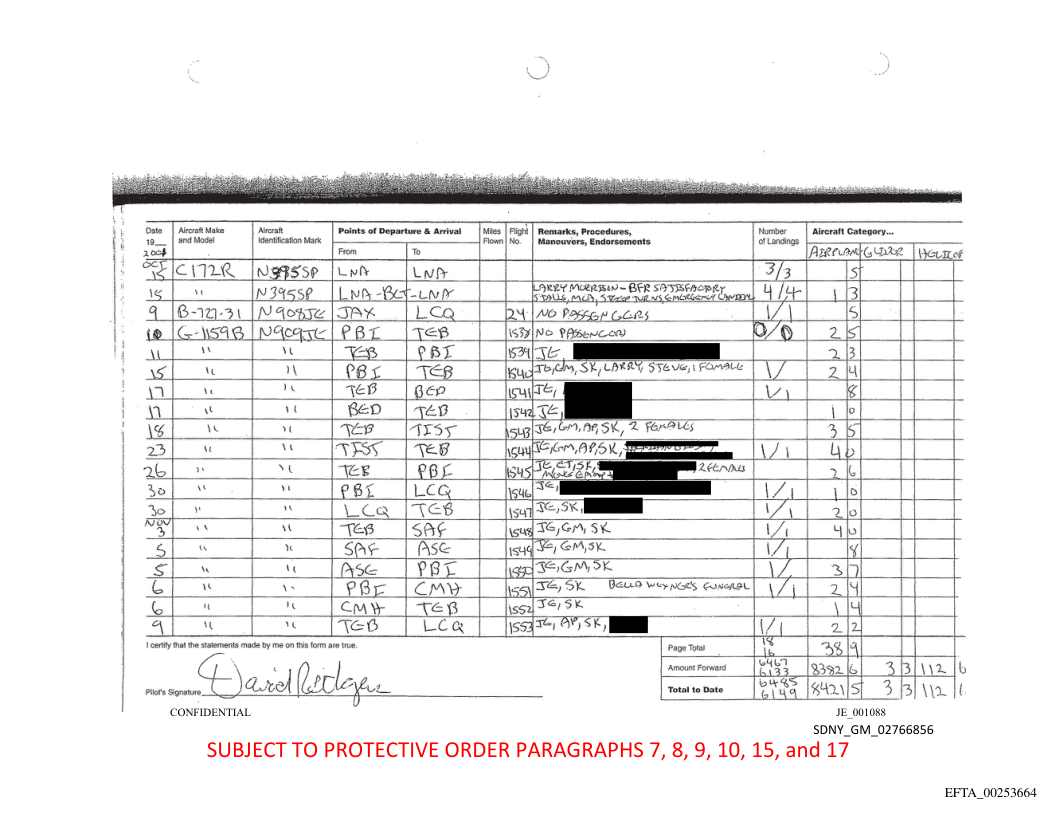 Date Aircraft Make Aircraft Points of Departure & Arrival Miles Flight Remarks, Procedures, Number Aircraft Category...
19__ and Model Identification Mark From To Flown No. Manouvers, Endorsements of Landings
2001 AIRPLANE GLIDER
OCT 15 C172R N395SP LNA LNA 3/3 5
15 " N395SP LNA-BCT-LNA LARRY MORRISON - BFR SATISFACTORY STALLS, MCA, STEEP TURNS, EMERGENCY LANDING 4/4 1 3
9 B-727-31 N908JE JAX LCQ 24 NO PASSENGERS 1/1 5
10 G-1159B N909JE PBI TEB 1538 NO PASSENGERS 0/0 2 5
11 " " TEB PBI 1539 JE 2 3
15 " " PBI TEB 1540 JE, GM, SK, LARRY, STEVE, 1 FEMALE 1/ 2 4
17 " " TEB BED 1541 JE, 1/1 8
17 " " BED TEB 1542 JE, 1 0
18 " " TEB TIST 1543 JE, GM, AP, SK, 2 FEMALES 3 5
23 " " TIST TEB 1544 JE, GM, AP, SK, 1/1 4 0
26 " " TEB PBI 1545 JE, ET, SK, , 2 FEMALES 2 6
30 " " PBI LCQ 1546 JE, 1/1 1 0
30 " " LCQ TEB 1547 JE, SK, 1/1 2 0
NOV 3 " " TEB SAF 1548 JE, GM, SK 1/1 4 0
5 " " SAF ASE 1549 JE, GM, SK 1/1 8
5 " " ASE PBI 1550 JE, GM, SK 1/ 3 7
6 " " PBI CMH 1551 JE, SK BELLA WEXNER'S FUNERAL 1/1 2 4
6 " " CMH TEB 1552 JE, SK 1 4
9 " " TEB LCQ 1553 JE, AP, SK, 1/1 2 2
I certify that the statements made by me on this form are true. Page Total 18 16 38 9
Amount Forward 6467 6133 8382 6 3 3 112 6
Pilot's Signature David Rodgers Total to Date 6485 6149 8421 5 3 3 112
CONFIDENTIAL JE_001088
SDNY_GM_02766856
SUBJECT TO PROTECTIVE ORDER PARAGRAPHS 7, 8, 9, 10, 15, and 17
EFTA_00253664